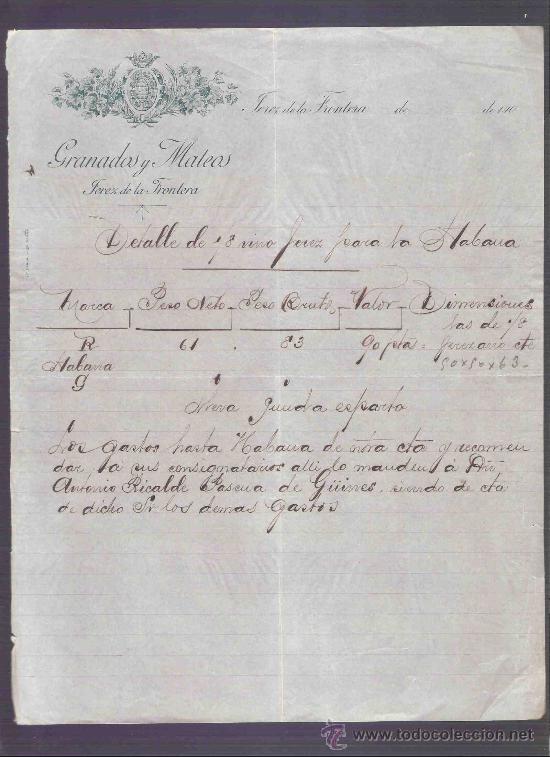 Jerez de la Frontera de de 190
Granados y Mateos
Jerez de la Frontera
Detalle de 1/8 vino Jerez para la Habana
Marca Peso Neto Peso Bruto Valor Dimensiones
R 61 . 83 90 ptas has de 1/8
Habana jerezano cte
G 50x50x63-
Lleva funda esparto
Los gastos hasta Habana de ntra cta y recomen
dar, á sus consignatarios alli lo manden á Dn
Antonio Ricalde Pascua de Güines, siendo de cta
de dicho Sr los demas gastos
www.todocoleccion.net